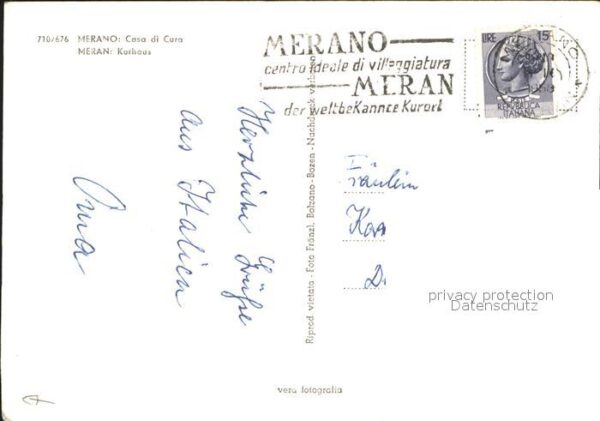 710/676 MERANO: Casa di Cura
MERAN: Kurhaus
MERANO
centro ideale di villeggiatura
MERAN
der weltbekannte Kurort
LIRE 15
REPUBBLICA
ITALIANA
MERANO
Herzliche Grüße
aus Italien
Oma
Riprod. vietata - Foto Fränzl, Bolzano - Bozen - Nachdruck verboten
Fräulein
D.
privacy protection
Datenschutz
vera fotografia